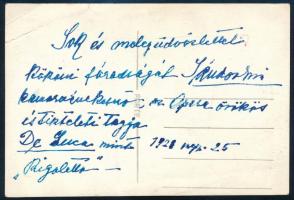 Sok és meleg üdvözlettel
köszöni fáradságát Sándorné
kamaraénekesnő az Opera örökös
és tiszteleti tagja
De Luca mint 1928 25
"Rigoletto" —